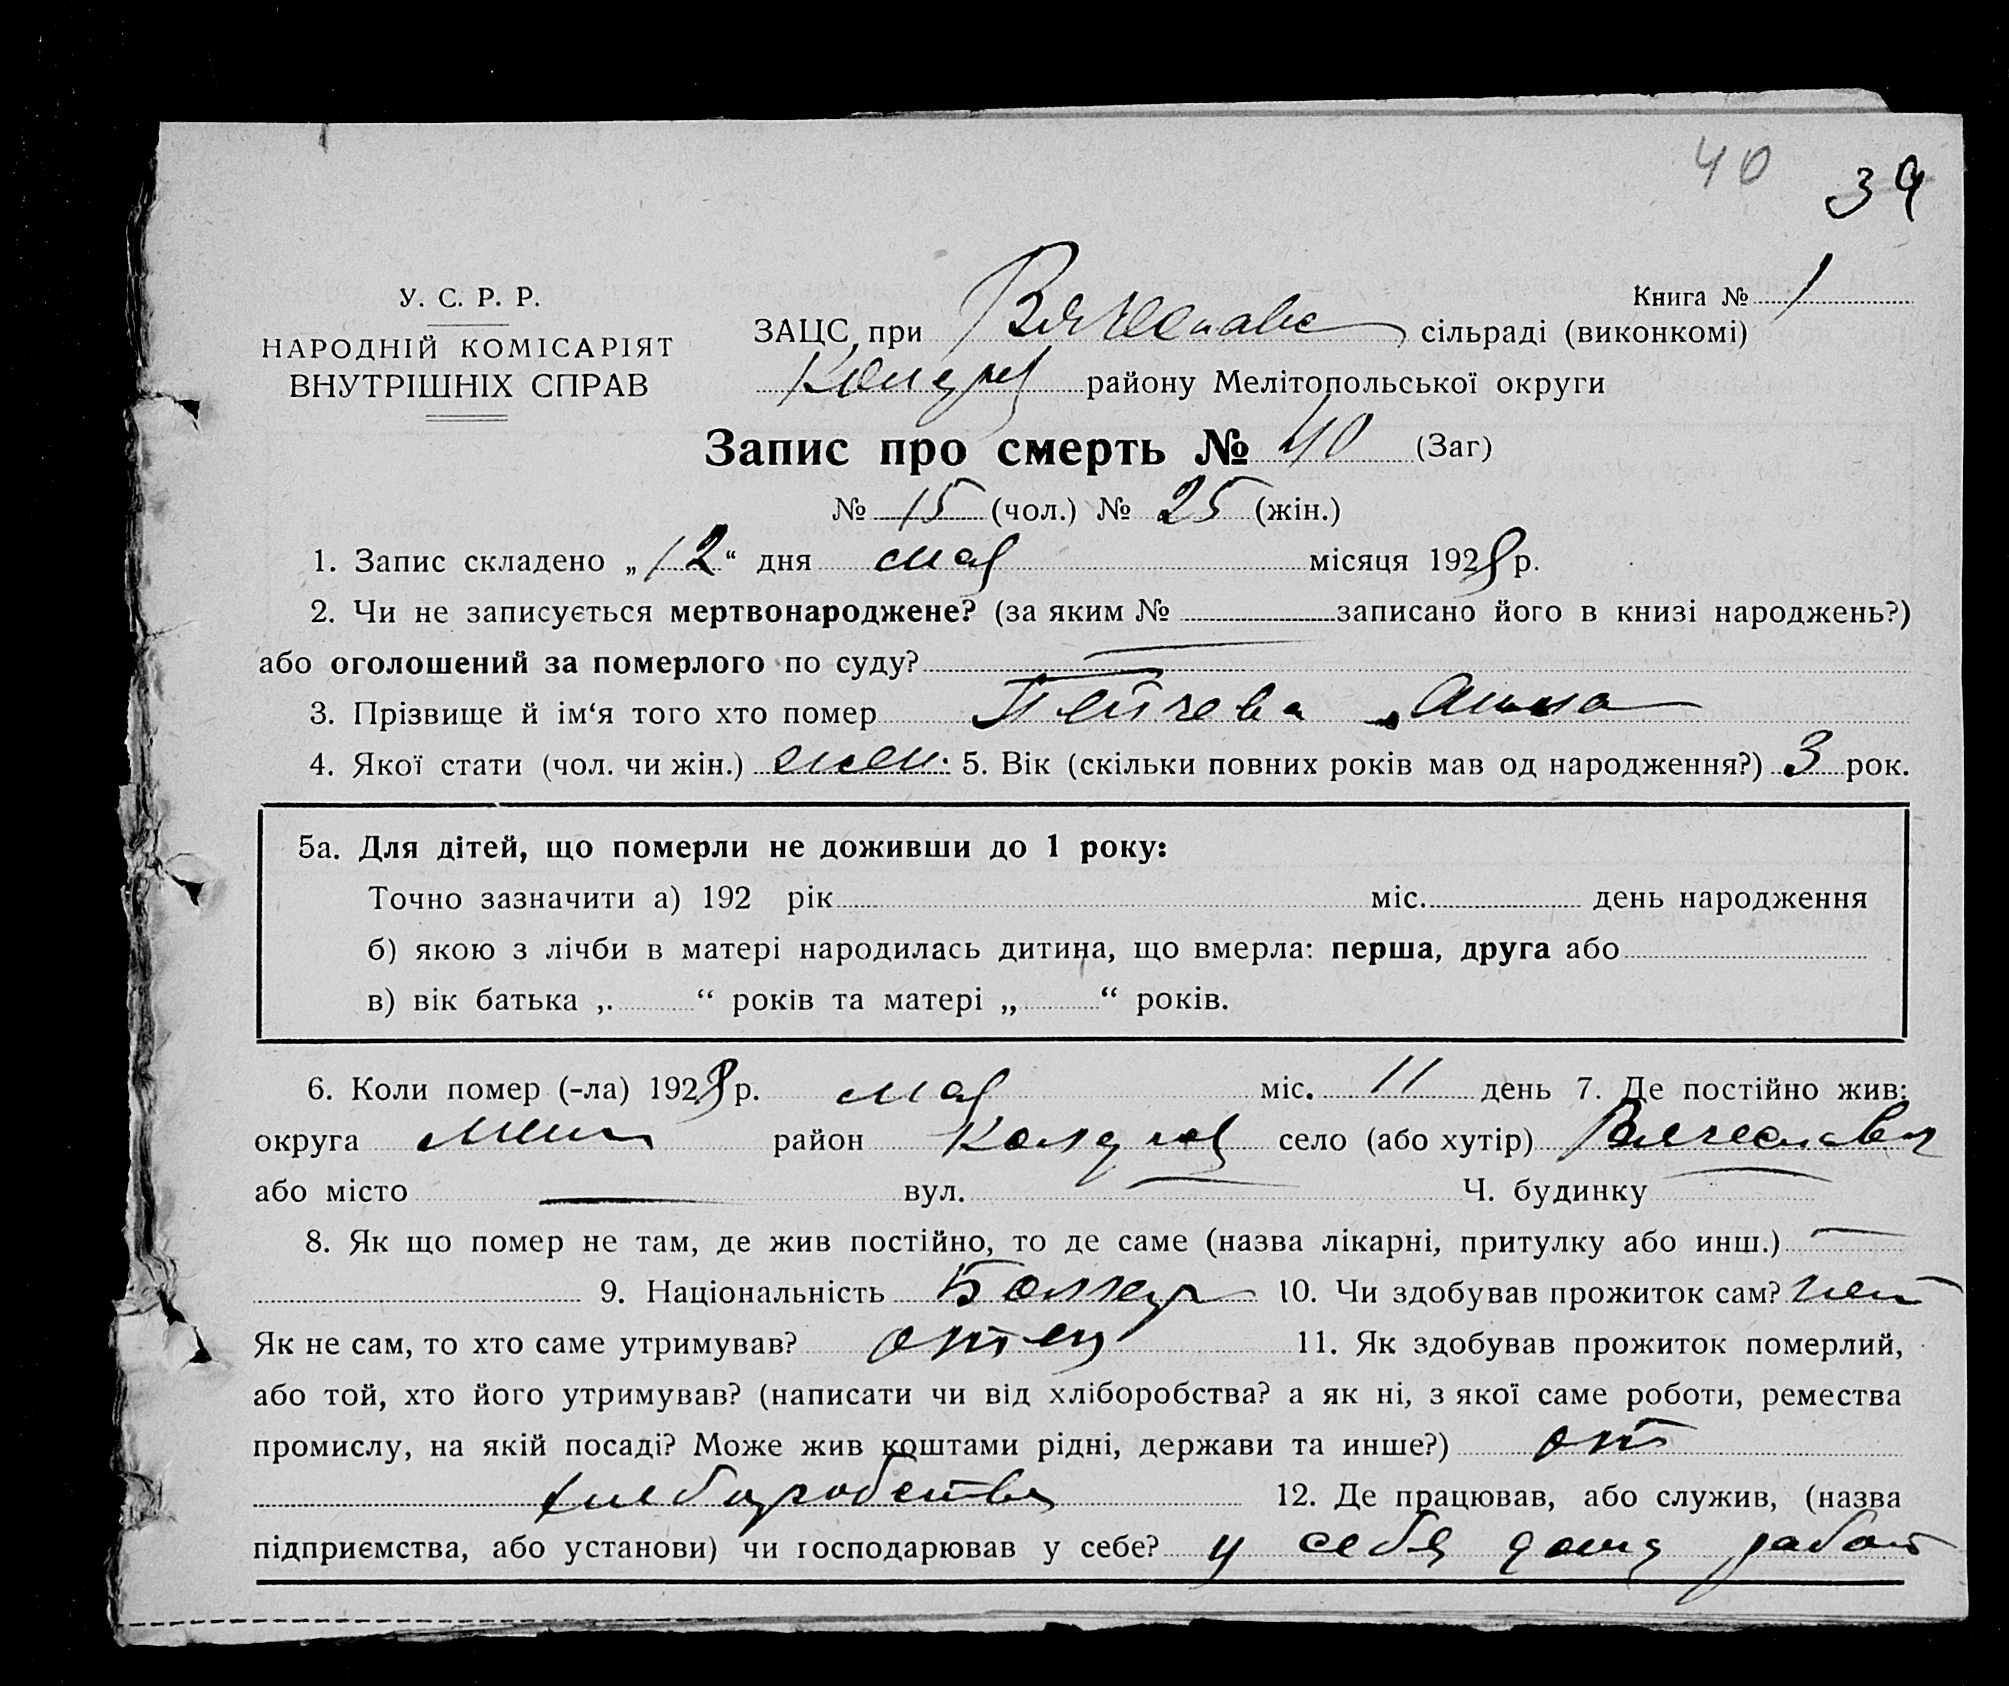 40 39
У. С. Р. Р.
НАРОДНІЙ КОМІСАРІЯТ
ВНУТРІШНІХ СПРАВ
Книга № 1
ЗАЦС при Вячеславс сільраді (виконкомі)
району Мелітопольської округи
Запис про смерть № 40 (Заг)
№ 15 (чол.) № 25 (жін.)
1. Запис складено „12“ дня мая місяця 1928 р.
2. Чи не записується мертвонароджене? (за яким № записано його в книзі народжень?)
або оголошений за померлого по суду?
3. Прізвище й ім'я того хто помер Пейчева Анна
4. Якої стати (чол. чи жін.) жен. 5. Вік (скільки повних років мав од народження?) 3 рок.
5а. Для дітей, що померли не доживши до 1 року:
Точно зазначити а) 192 рік міс. день народження
б) якою з лічби в матері народилась дитина, що вмерла: перша, друга або
в) вік батька „ “ років та матері „ “ років.
6. Коли помер (-ла) 1928 р. мая міс. 11 день 7. Де постійно жив:
округа район село (або хутір) Вячеславк
або місто вул. Ч. будинку
8. Як що помер не там, де жив постійно, то де саме (назва лікарні, притулку або инш.)
9. Національність Болгар 10. Чи здобував прожиток сам? нет
Як не сам, то хто саме утримував? отец 11. Як здобував прожиток померлий,
або той, хто його утримував? (написати чи від хліборобства? а як ні, з якої саме роботи, ремества
промислу, на якій посаді? Може жив коштами рідні, держави та инше?) от
хлеборобства 12. Де працював, або служив, (назва
підприємства, або установи) чи господарював у себе? у себя дома работ